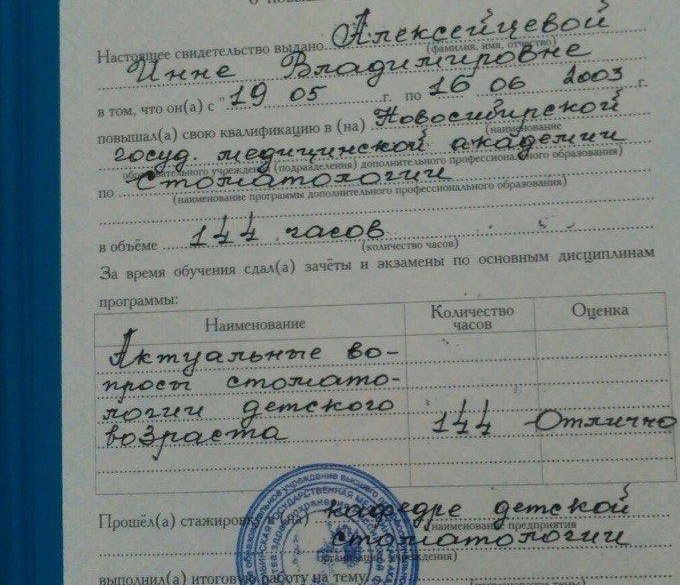 Настоящее свидетельство выдано Алексейцевой
(фамилия, имя, отчество)
Инне Владимировне
в том, что он(а) с "19 05 г. по 16 06 2003 г.
повышал(а) свою квалификацию в (на) Новосибирской
(наименование
госуд. медицинской академии
образовательного учреждения (подразделения) дополнительного профессионального образования)
по Стоматологии
(наименование программы дополнительного профессионального образования)
в объёме 144 часов
(количество часов)
За время обучения сдал(а) зачёты и экзамены по основным дисциплинам
программы:
Наименование Количество часов Оценка
Актуальные во-
просы стомато-
логии детского
возраста 144 Отлично
Прошёл(а) стажировку в (на) кафедре детской
(наименование предприятия
стоматологии
организации, учреждения)
выполнил(а) итоговую работу на тему